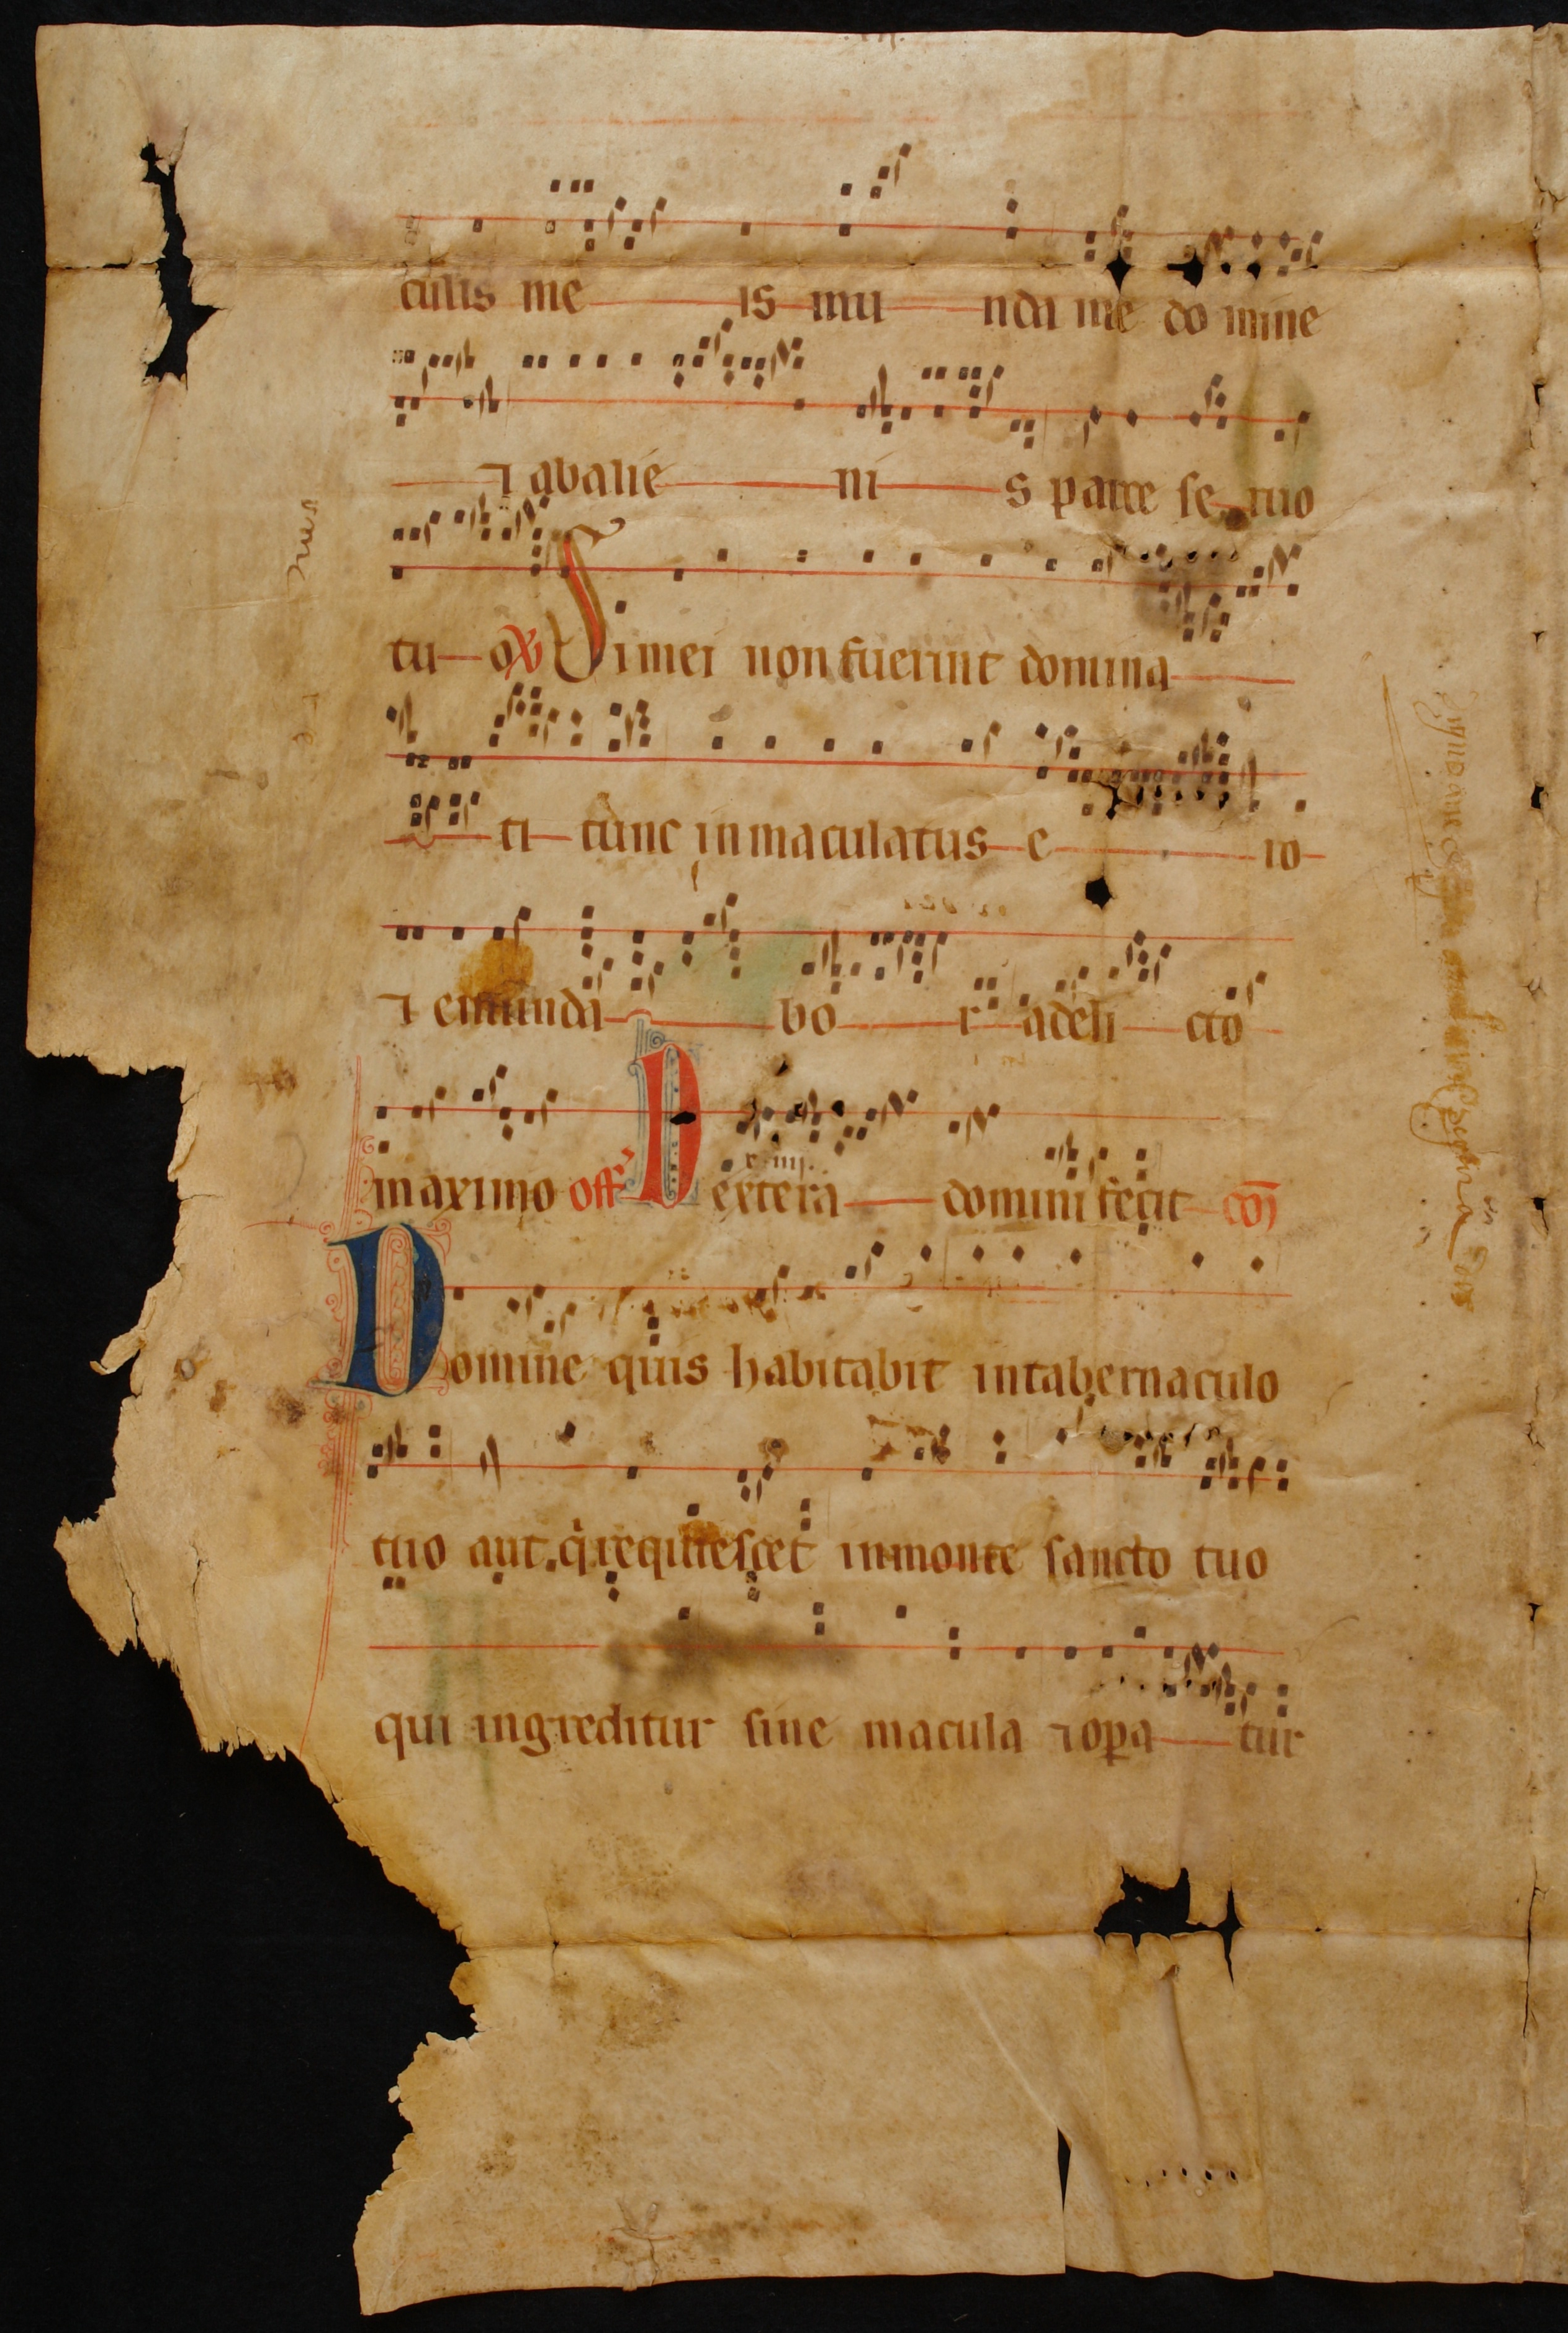 cultis me is mu nda me domine
⁊ abalie ni s parce seruo
tu o ℣ Si mei non fuerint domina
ti tunc inmaculatus e ro
⁊ emunda bo r adeli cto
maximo off Dextera domini fecit cō
Domine quis habitabit intabernaculo
tuo aut q̇ requiescet inmonte sancto tuo
qui ingreditur sine macula ⁊ oꝑa tur